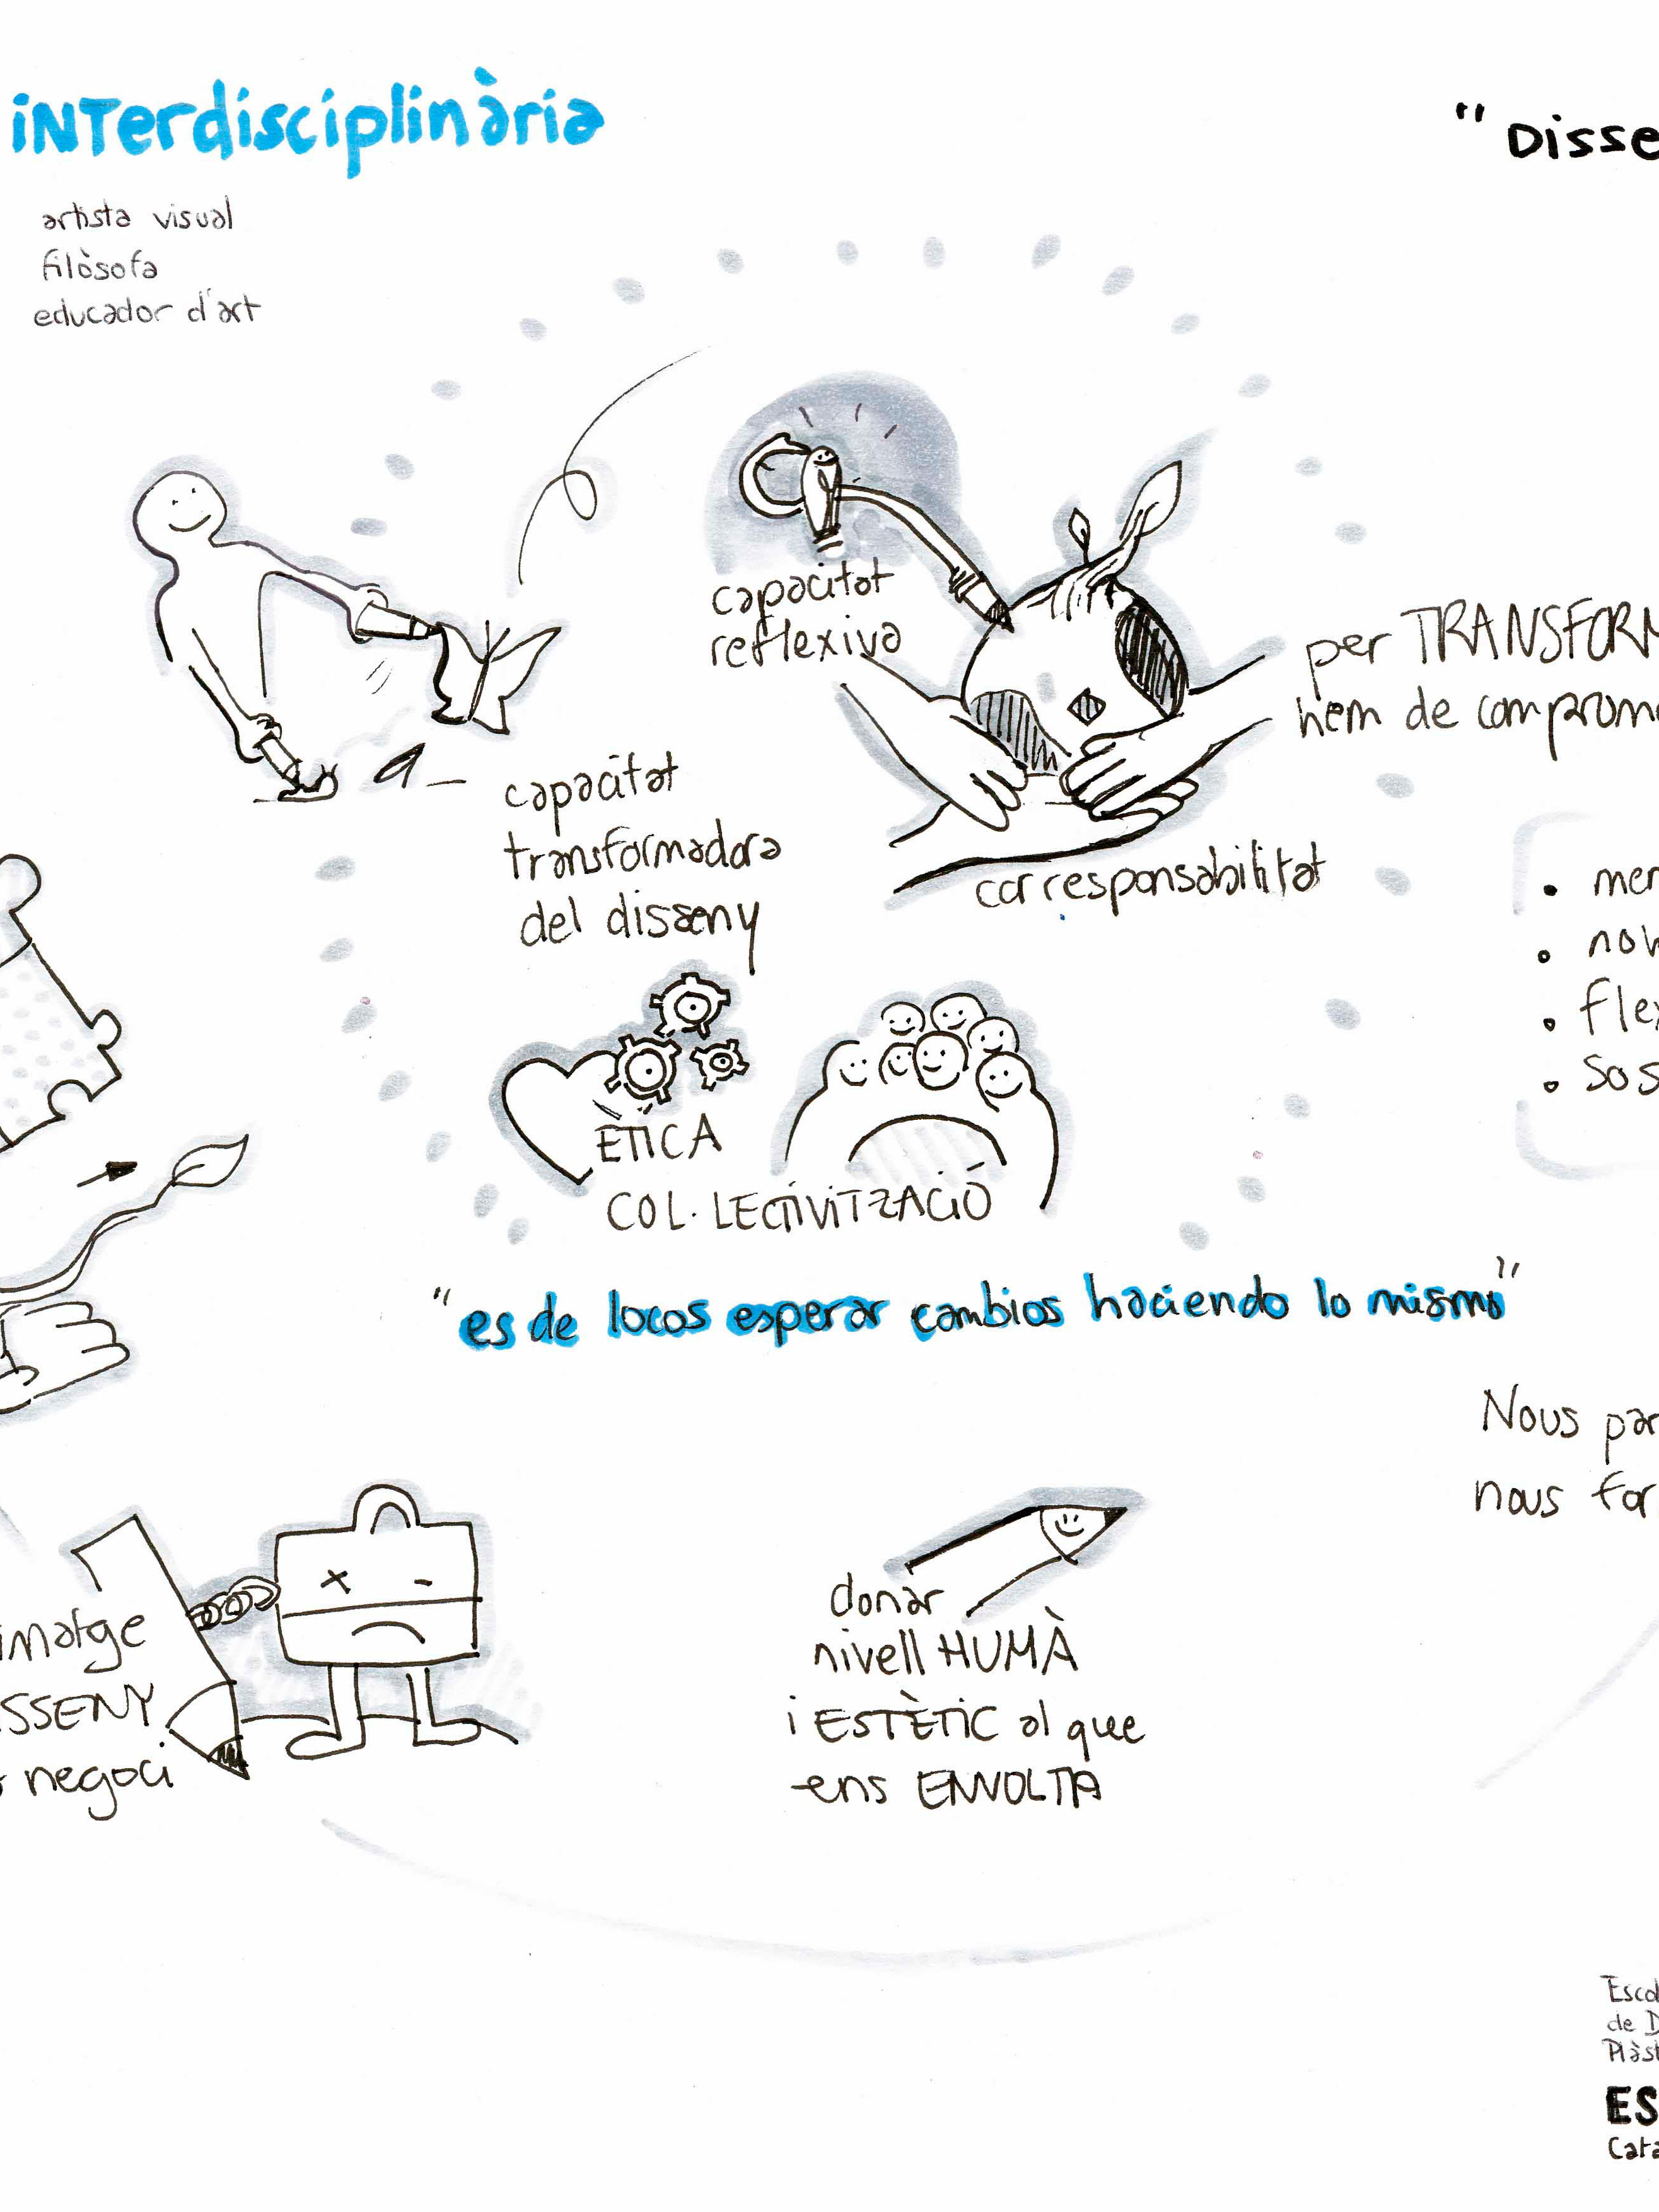 iNTerdisciplinària
artista visual
filòsofa
educador d'art
"Disse
capacitat
reflexiva
per TRANSFORM
hem de comprome
capacitat
transformadora
del disseny
corresponsabilitat
mer
nov
flex
sos
ETICA
COL·LECTIVITZACIÓ
"es de locos esperar cambios haciendo lo mismo"
Nous par
nous for
imatge
SSENY
negoci
donar
nivell HUMÀ
i ESTÈTIC al que
ens ENVOLTA
Escol
de D
Plàst
ES
Cata